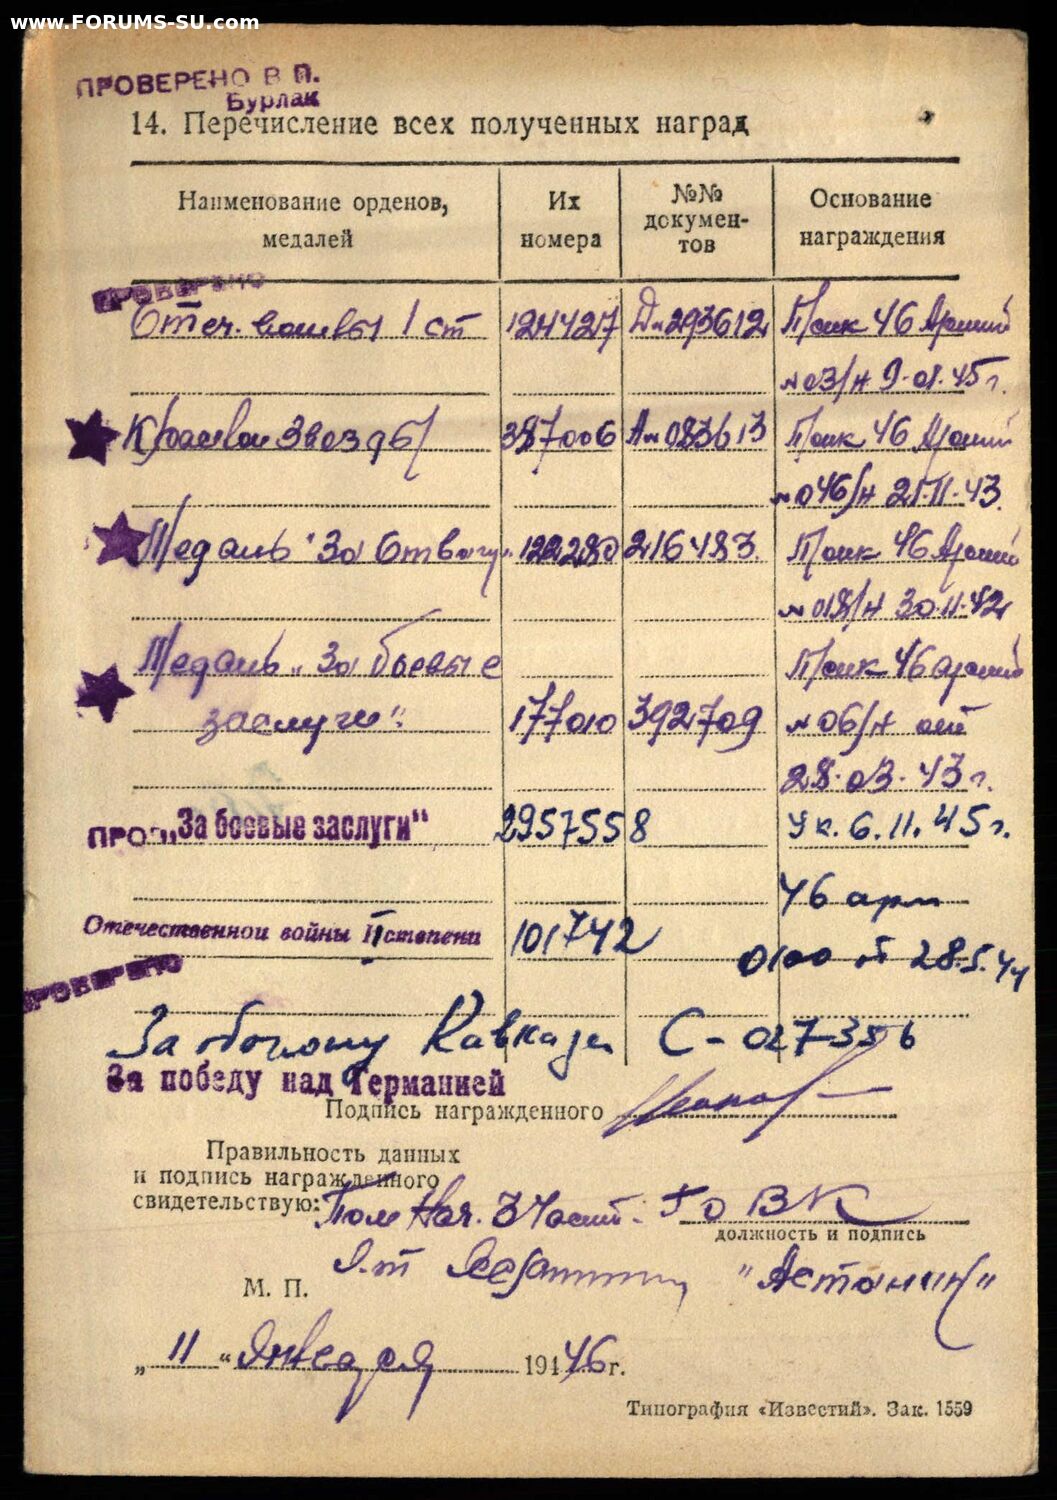 www.FORUMS-SU.com
ПРОВЕРЕНО В П.
Бурлак
14. Перечисление всех полученных наград
Наименование орденов, медалей
Их номера
№№ докумен-тов
Основание награждения
ПРОВЕРЕНО
Отеч. войны 1 ст 124427 Д № 293612 Прик 46 Армии
№ 03/н 9.01.45 г.
Красной Звезды 387006 А № 083613 Прик 46 Армии
№ 046/н 21.11.43.
Медаль "За Отвагу" 122280 216483. Прик 46 Армии
№ 018/н 30.11.42
Медаль "За боевые Прик 46 армии
заслуги". 177010 392709 № 06/н от
28.03.43 г.
ПРО „За боевые заслуги“ 2957558 Ук. 6.11.45 г.
46 арм
Отечественной войны II степени 101742
0100 от 28.5.44
ПРОВЕРЕНО
За оборону Кавказа С-027356
За победу над Германией
Подпись награжденного
Правильность данных
и подпись награжденного
свидетельствую: Пом Нач. 3 Части ГВК
должность и подпись
М. П.
"Астанин"
„11“ Января 1946 г.
Типография «Известий». Зак. 1559